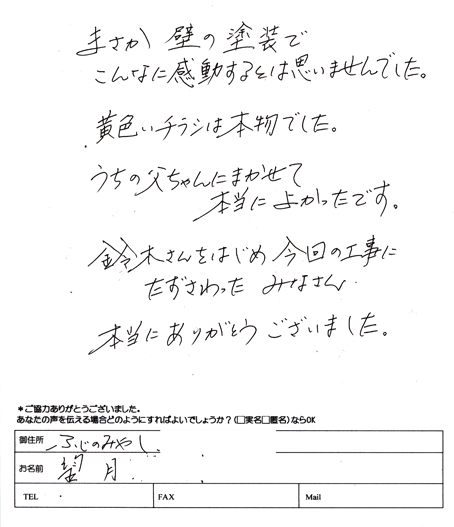 まさか 壁の塗装で
こんなに感動するとは思いませんでした。
黄色いチラシは本物でした。
うちの父ちゃんにまかせて
本当によかったです。
鈴木さんをはじめ今回の工事に
たずさわった みなさん
本当にありがとうございました。
*ご協力ありがとうございました。
あなたの声を伝える場合どのようにすればよいでしょうか？(□実名□匿名)ならOK
御住所 ふじのみやし
お名前 望月
TEL FAX Mail